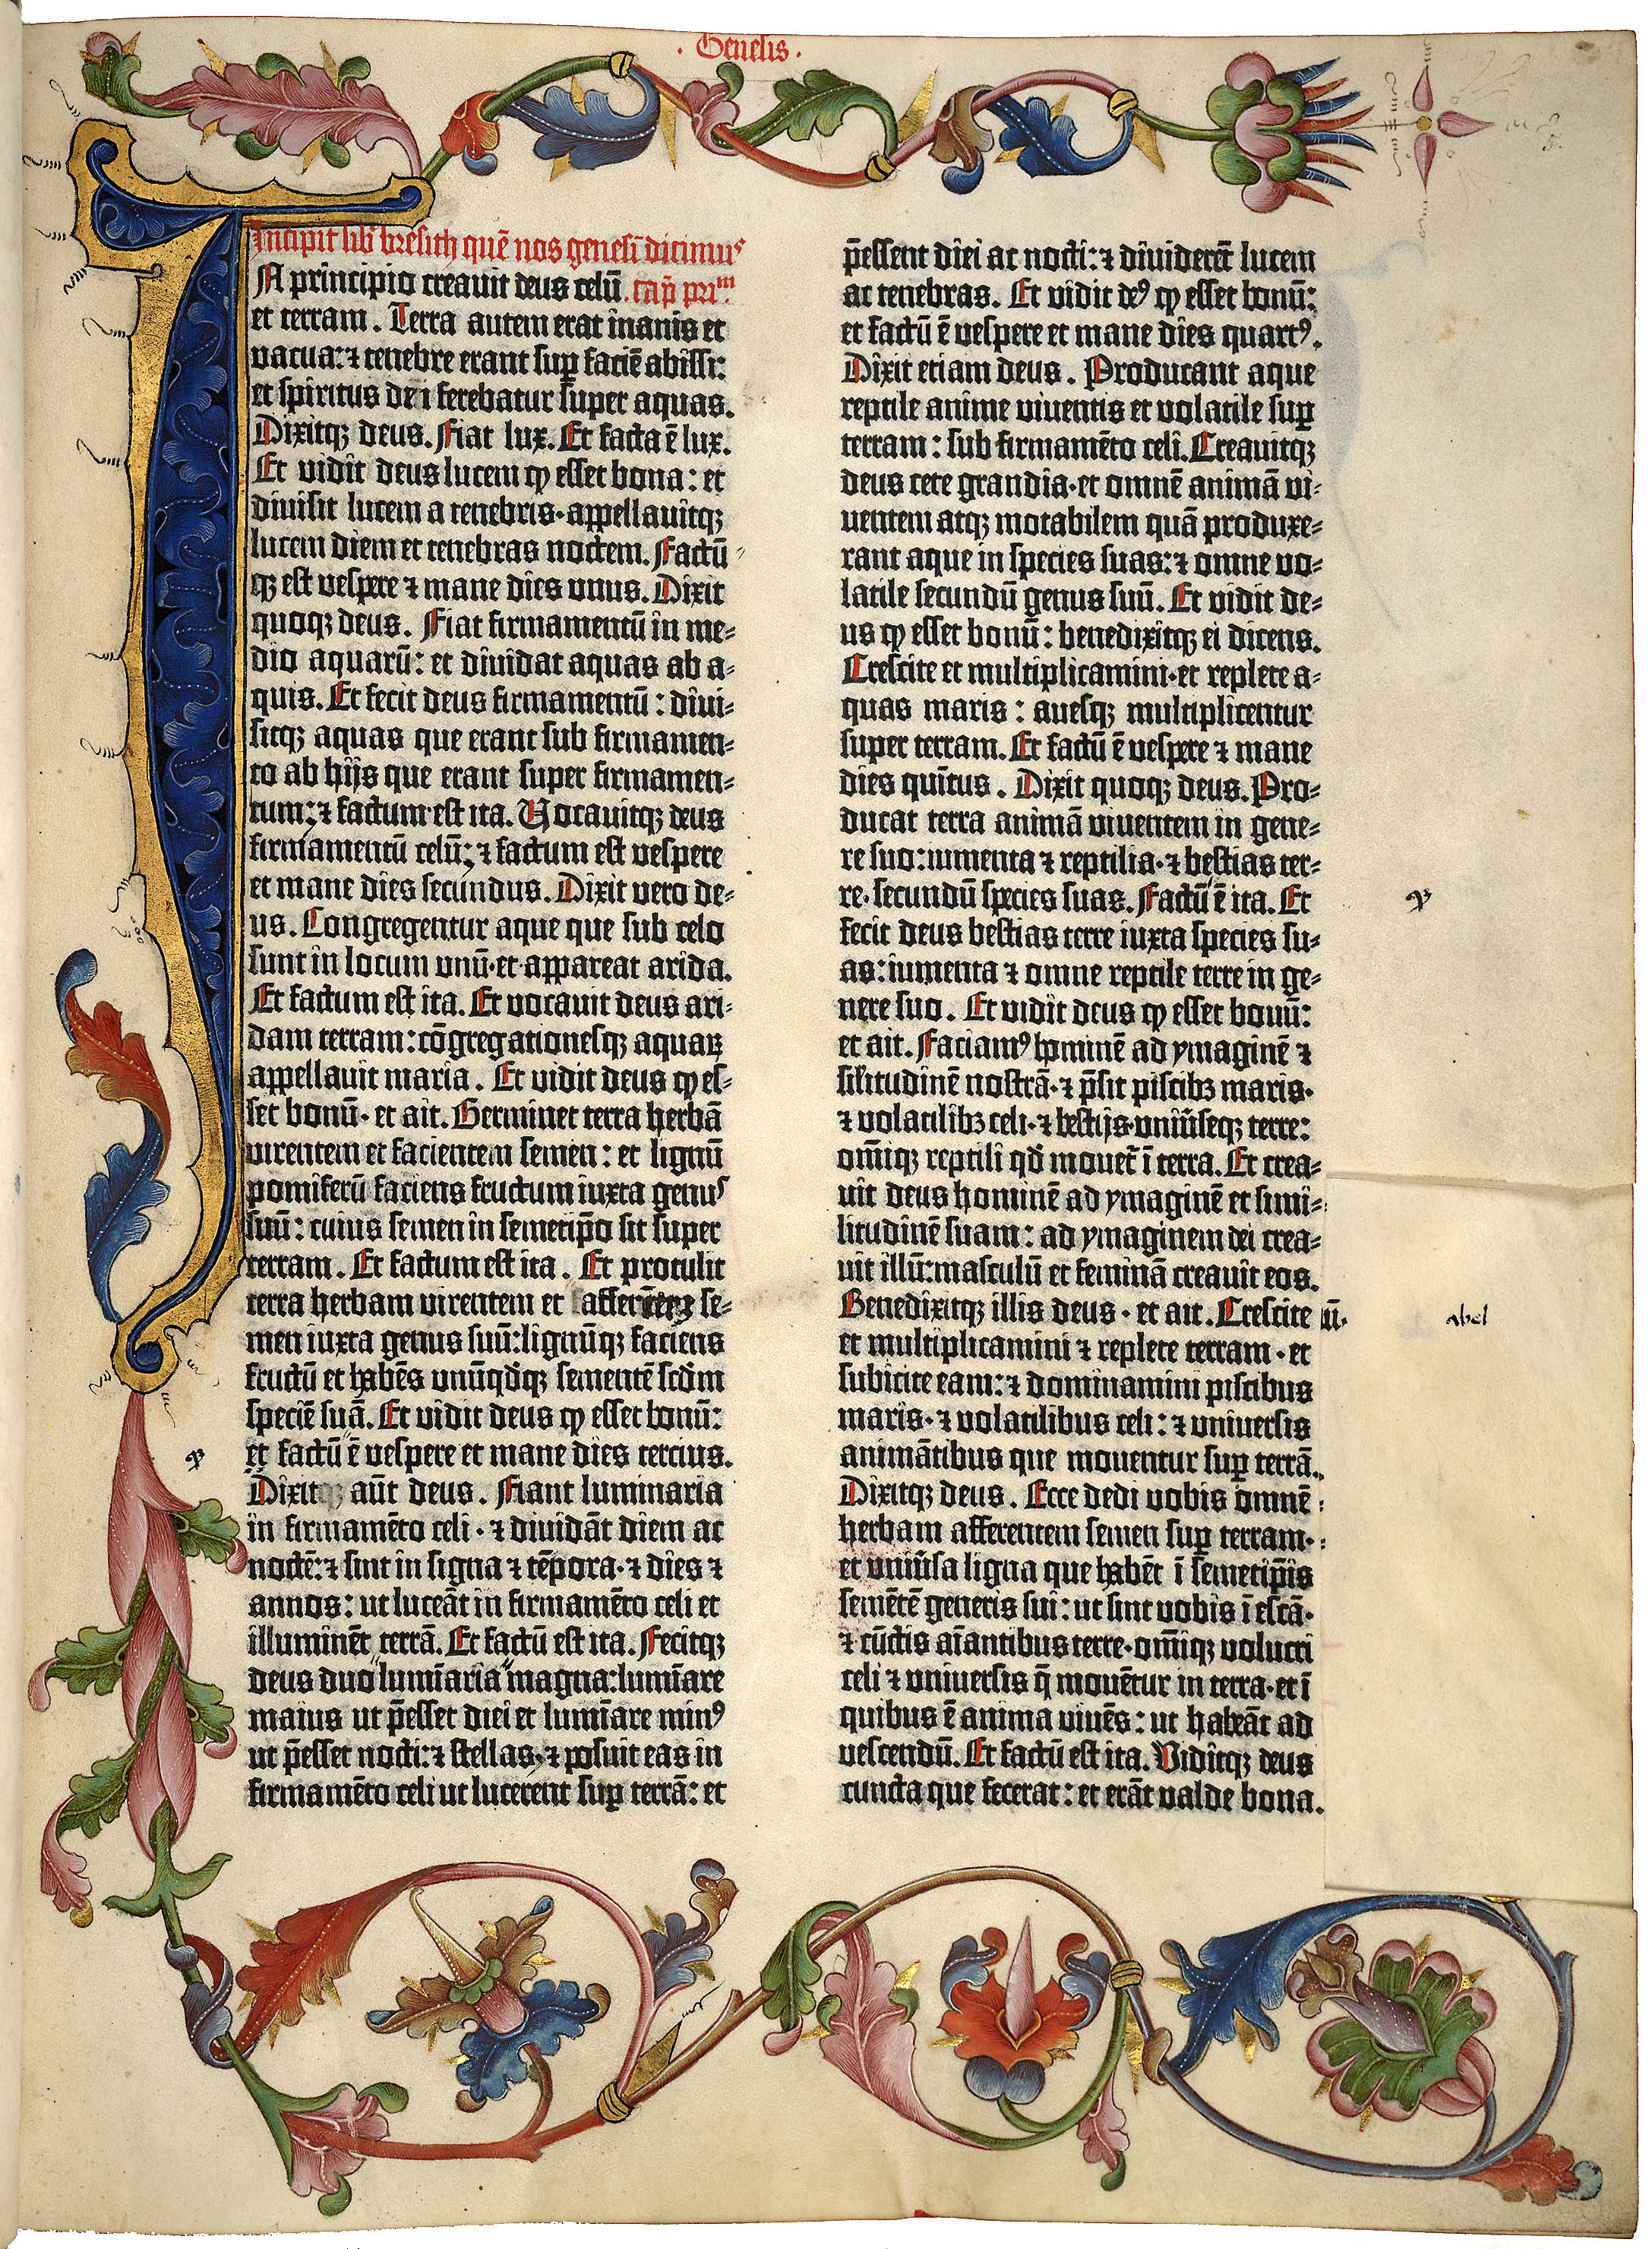 · Genesis ·
Incipit lib̄ bresith quē nos genesī dicimus
IN principio creavit deus celū. cap̄ prim̄
et terram. Terra autem erat inanis et
vacua: ⁊ tenebre erant sup̲ faciē abissi:
et spiritus dei ferebatur super aquas.
Dixitqꝫ deus. Fiat lux. Et facta ē lux.
Et vidit deus lucem ꝙ esset bona: et
divisit lucem a tenebris·appellavitqꝫ
lucem diem et tenebras noctem. Factū
qꝫ est vespere ⁊ mane dies unus. Dixit
quoqꝫ deus. Fiat firmamentū in me-
dio aquarū: et dividat aquas ab a-
quis. Et fecit deus firmamentū: divi-
sitqꝫ aquas que erant sub firmamen-
to ab hijs que erant super firmamen-
tum: ⁊ factum est ita. Vocavitqꝫ deus
firmamentū celū: ⁊ factum est vespere
et mane dies secundus. Dixit vero de-
us. Congregentur aque que sub celo
sunt in locum unū·et appareat arida.
Et factum est ita. Et vocavit deus ari-
dam terram: cōgregationesqꝫ aquaꝝ
appellavit maria. Et vidit deus ꝙ es-
set bonū· et ait. Germinet terra herbā
virentem et facientem semen: et lignū
pomiferū faciens fructum iuxta genus
suū: cuius semen in semetip̄o sit super
terram. Et factum est ita. Et protulit
terra herbam virentem et se-
men iuxta genus suū: lignūqꝫ faciens
fructū et habēs unūqdqꝫ sementē scdm
speciē suā. Et vidit deus ꝙ esset bonū:
et factū ē vespere et mane dies tercius.
Dixit aūt deus. Fiant luminaria
in firmamēto celi· ⁊ dividāt diem ac
noctē: ⁊ sint in signa ⁊ tēpora· ⁊ dies ⁊
annos: ut luceāt in firmamēto celi et
illuminēt terrā. Et factū est ita. Fecitqꝫ
deus duo lumīaria magna: lumīare
maius ut p̄esset diei et lumīare minꝰ
ut p̄esset nocti: ⁊ stellas· ⁊ posuit eas in
firmamēto celi ut lucerent sup̲ terrā: et
p̄essent diei ac nocti: ⁊ dividerēt lucem
ac tenebras. Et vidit deꝰ ꝙ esset bonū:
et factū ē vespere et mane dies quartꝰ.
Dixit etiam deus. Producant aque
reptile anime viventis et volatile sup̲
terram: sub firmamēto celi. Creavitqꝫ
deus cete grandia·et omnē animā vi-
ventem atqꝫ motabilem quā produxe-
rant aque in species suas: ⁊ omne vo-
latile secundū genus suū. Et vidit de-
us ꝙ esset bonū: benedixitqꝫ ei dicens.
Crescite et multiplicamini·et replete a-
quas maris: avesqꝫ multiplicentur
super terram. Et factū ē vespere ⁊ mane
dies quītus. Dixit quoqꝫ deus. Pro-
ducat terra animā viventem in gene-
re suo: iumenta ⁊ reptilia· ⁊ bestias ter-
re· secundū species suas. Factū ē ita. Et
fecit deus bestias terre iuxta species su-
as: iumenta ⁊ omne reptile terre in ge-
nere suo. Et vidit deus ꝙ esset bonū:
et ait. Faciamꝰ hominē ad ymaginē ⁊
sil̄itudinē nostrā· ⁊ p̄sit piscibꝫ maris·
⁊ volatilibꝫ celi· ⁊ bestijs univ̄seqꝫ terre:
om̄iqꝫ reptili qd̄ movet̄ ī terra. Et crea-
vit deus hominē ad ymaginē et simi-
litudinē suam: ad ymaginem dei crea-
vit illū: masculū et feminā creavit eos.
Benedixitqꝫ illis deus· et ait. Crescite
et multiplicamini ⁊ replete terram· et
subicite eam: ⁊ dominamini piscibus
maris· ⁊ volatilibus celi: ⁊ universis
animātibus que moventur sup̲ terrā.
Dixitqꝫ deus. Ecce dedi vobis omnē
herbam afferentem semen sup̲ terram·
et univ̄sa ligna que habēt ī semetip̄is
semētē generis sui: ut sint vobis ī escā·
⁊ cūctis aīantibus terre· om̄iqꝫ volucri
celi ⁊ universis q̄ movētur in terra· et ī
quibus ē anima vivēs: ut habeāt ad
vescendū. Et factū est ita. Viditqꝫ deus
cuncta que fecerat: et erāt valde bona.
abel